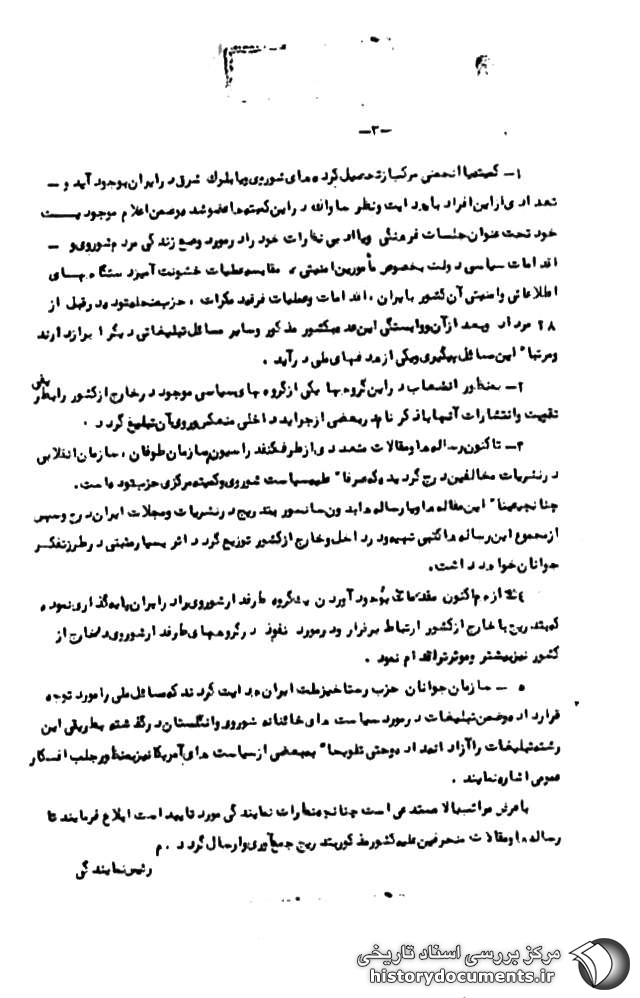 -۳-
۱- کمیته یا انجمنی مرکب از تحصیل کرده های شوروی ویا بلوک شرق در ایران بوجود آید و -
تعدادی از این افراد با هدایت ونظر ساواک در این کمیته ها عضو شد وضمن اعلام موجودیت
خود تحت عنوان جلسات فرهنگی ویا ادبی نظارات خود را در مورد وضع زندگی مردم شوروی و -
اقدامات سیاسی دولت بخصوص مأمورین امنیتی مقایسه عملیات خشونت آمیز دستگاه های
اطلاعاتی وامنیتی آن کشور با ایران ، اقدامات وعملیات فرقه دمکرات ، حزب منحله توده در قبل از
۲۸ مرداد وبعد از آن ووابستگی این عده بکشور مذکور وسایر مسائل تبلیغاتی دیگر ابراز دارند
ومرتبا" این مسائل پیگیری ویکی از هدفهای ملی در آید .
۲- بمنظور انشعاب در این گروه ها یکی از گروه های سیاسی موجود در خارج از کشور را بطریقی
تقویت وانتشارات آنها با ذکر نام در بعضی از جراید داخلی منعکس وروی آن تبلیغ گردد .
۳- تاکنون رساله ها ومقالات متعددی از طرف کنفدراسیون سازمان طوفان ، سازمان انقلابی
در نشریات مخالفین درج گردیده که صرفا" علیه سیاست شوروی وکمیته مرکزی حزب توده است.
چنانچه عینا" این مقاله ها ویا رساله ها بدون سانسور بتدریج در نشریات ومجلات ایران درج وسپس
از مجموع این رساله ها کتبی تهیه ودر داخل وخارج از کشور توزیع گردد اثر بسیار مثبتی در طرز تفکر
جوانان خواهد داشت.
۴- از هم اکنون مقدمات بوجود آوردن یک گروه طرفدار شوروی را در ایران پایه گذاری نموده
که بتدریج با خارج از کشور ارتباط برقرار ودر مورد نفوذ در گروههای طرفدار شوروی در خارج از
کشور نیز بیشتر وموثرتر اقدام نمود .
۵ - سازمان جوانان حزب رستاخیز ملت ایران هدایت گردند که مسائل ملی را مورد توجه
قرار داده وضمن تبلیغات در مورد سیاست های خائنانه شوروی وانگلستان در گذشته بطریقی این
رشته تبلیغات را آزاد ادامه داده وحتی تلویحا" به بعضی از سیاست های آمریکا نیز بمنظور جلب افکار
عمومی اشاره نمایند .
با عرض مراتب بالا مستدعی است چنانچه نظرات نمایندگی مورد تایید است ابلاغ فرمایند تا
رساله ها ومقالات منحرفین علیه کشور مذکور بتدریج جمع آوری وارسال گردد . م
رئیس نمایندگی
مرکز بررسی اسناد تاریخی
historydocuments.ir